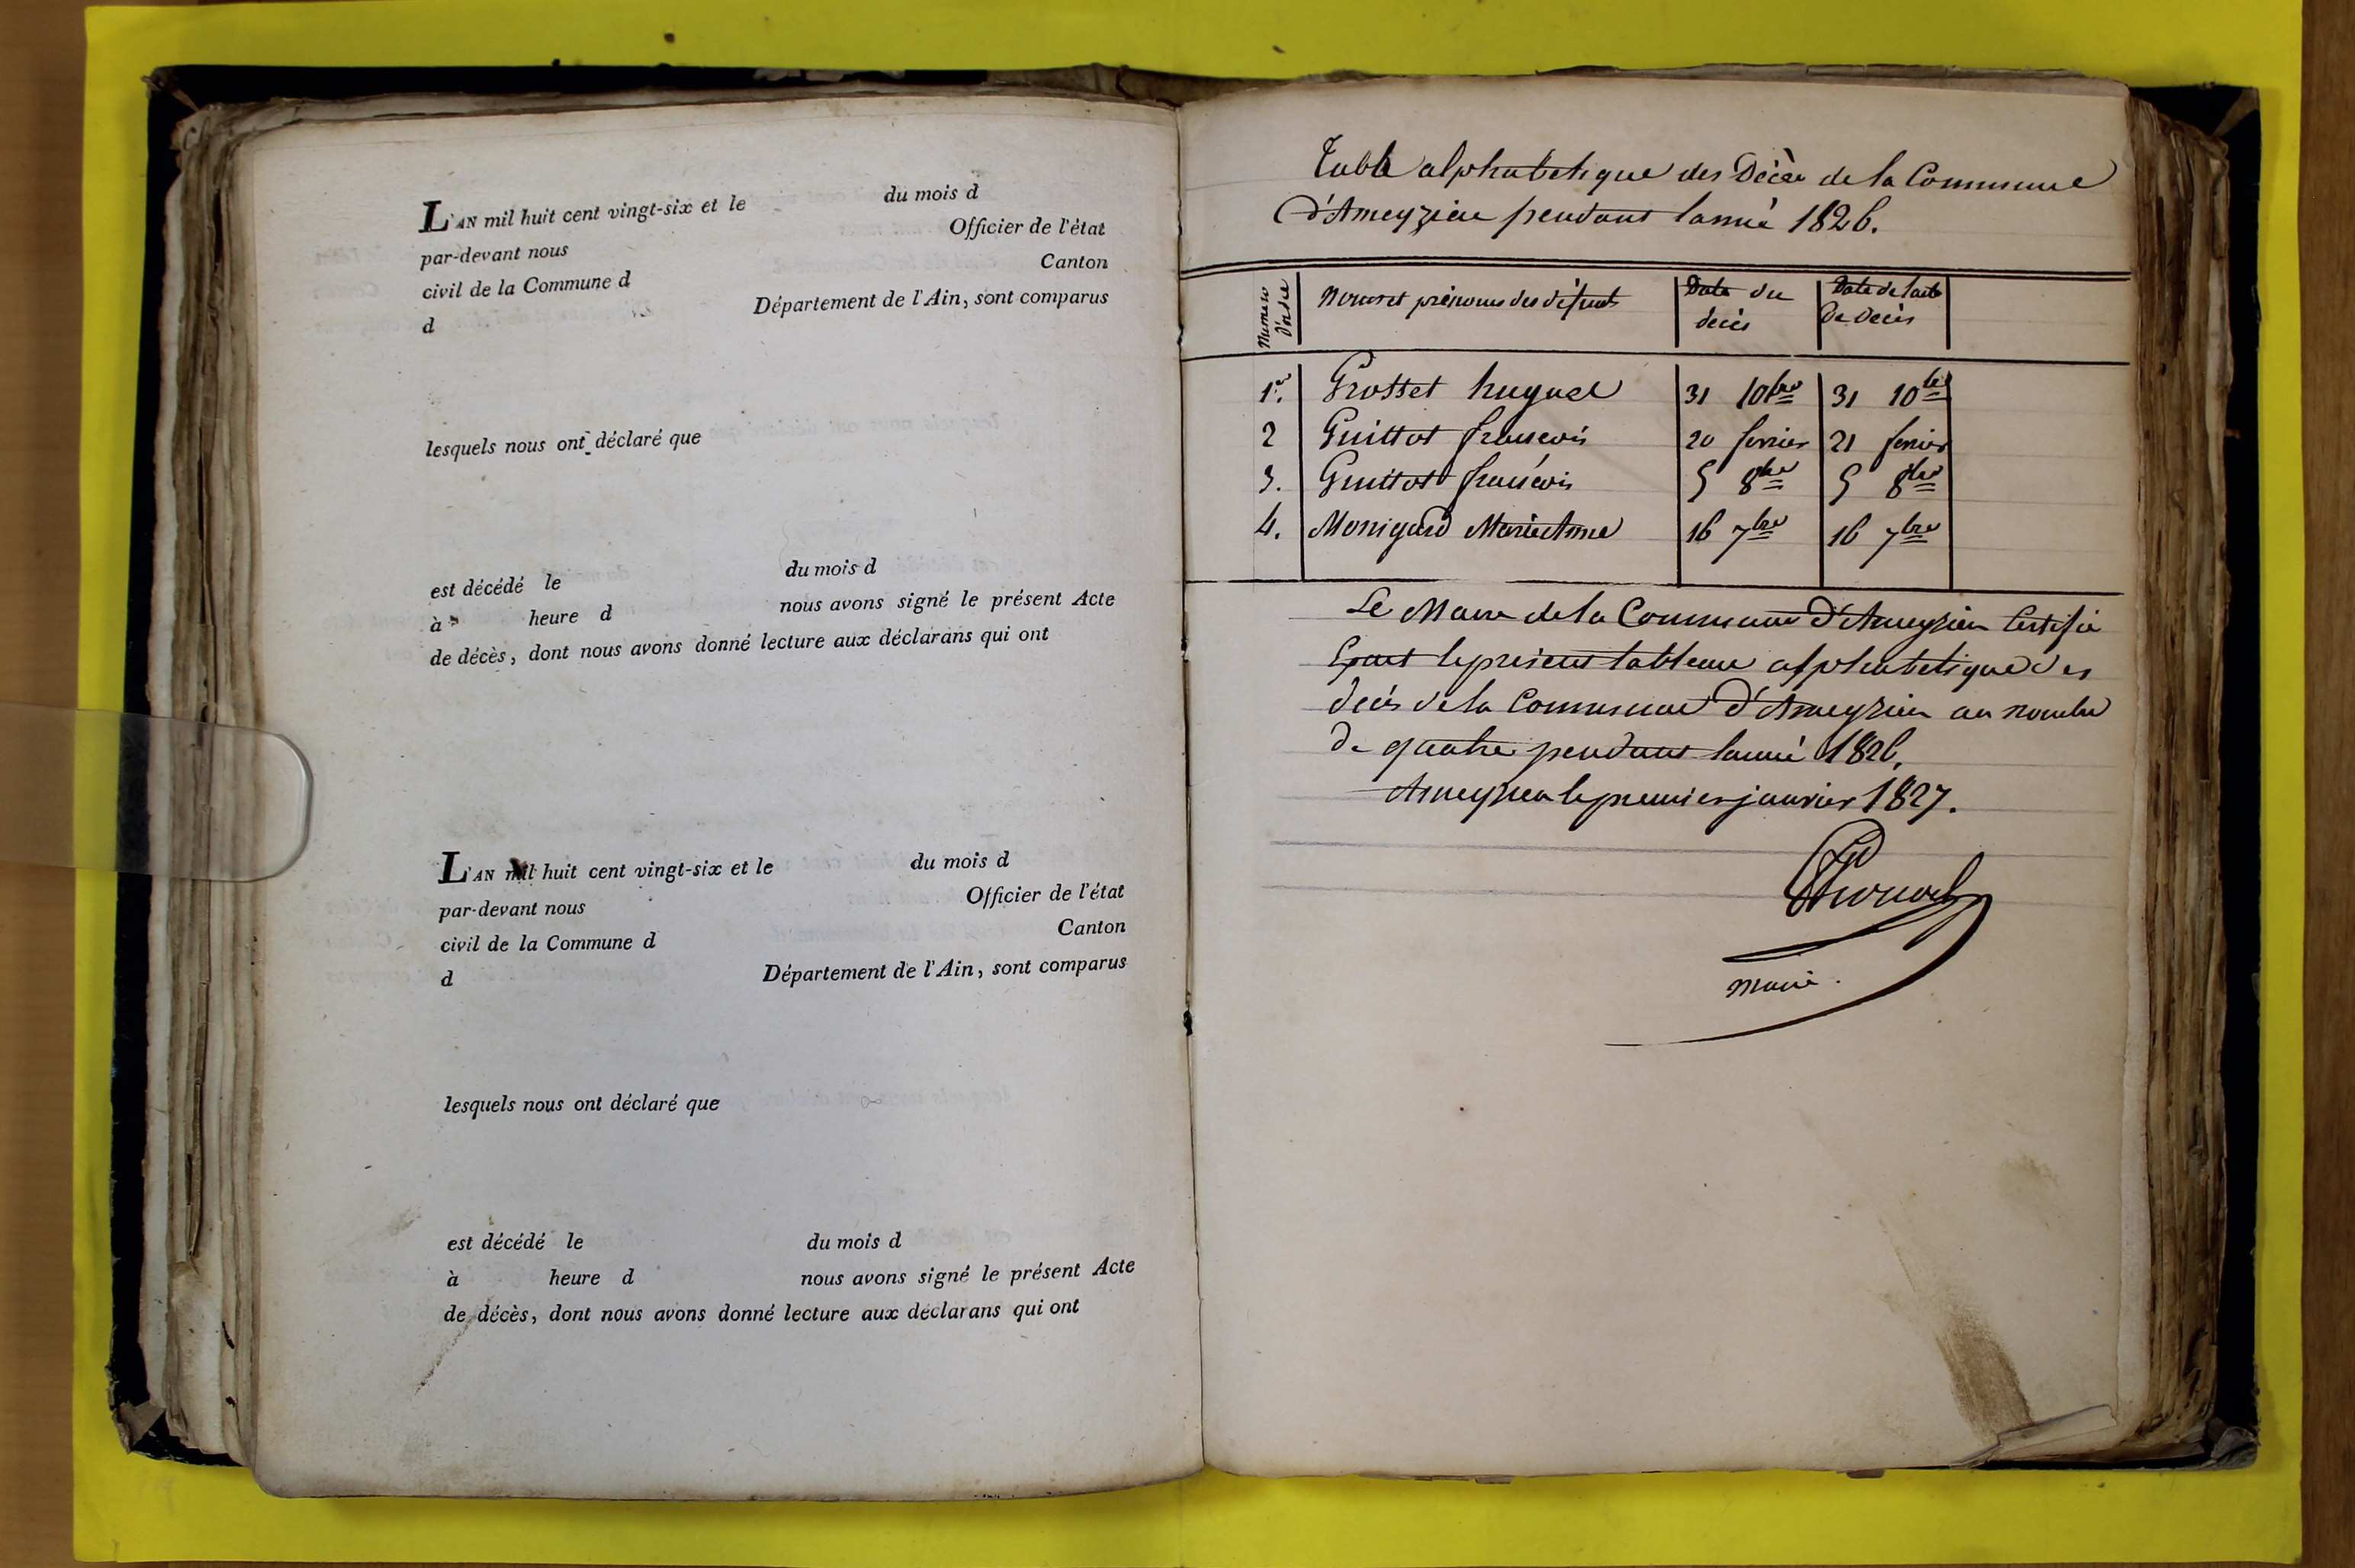 L'AN mil huit cent vingt-six et le du mois d
par-devant nous Officier de l'état
civil de la Commune d Canton
d Département de l'Ain, sont comparus
lesquels nous ont déclaré que
est décédé le du mois d
à heure d nous avons signé le présent Acte
de décès, dont nous avons donné lecture aux déclarans qui ont
L'AN mil huit cent vingt-six et le du mois d
par-devant nous Officier de l'état
civil de la Commune d Canton
d Département de l'Ain, sont comparus
lesquels nous ont déclaré que
est décédé le du mois d
à heure d nous avons signé le présent Acte
de décès, dont nous avons donné lecture aux déclarans qui ont
Table alphabetique des Décès de la Commune
d'Ameyzieu pendant lannée 1826.
Numero d'ordre Noms et prénoms des défunts Date du décès Date de l'acte De Décès
1er. Grosset huguel 31 10bre 31 10bre
2 Guittot francois 20 fevrier 21 fevrier
3. Guittot francois 5 8bre 5 8bre
4. Monigard Marie Anne 16 7bre 16 7bre
Le Maire de la Commune d'Ameyzieu Certifie
le présent tableau alphabetique des
décès de la Commune d'Ameyzieu au nombre
de quatre pendant lannée 1826.
Ameyzieu le premier janvier 1827.
maire.